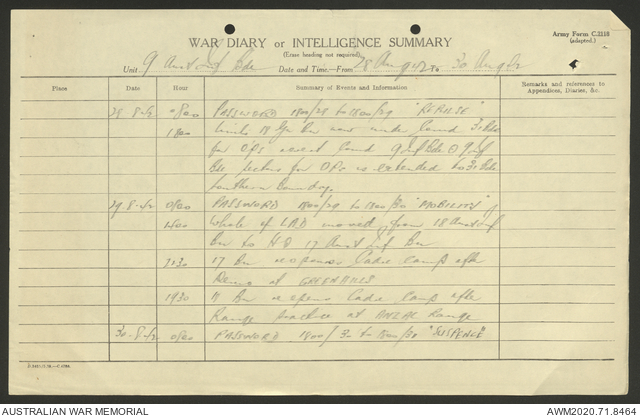 Army Form C.2118
(adapted.)
WAR DIARY or INTELLIGENCE SUMMARY
(Erase heading not required)
Unit 9 Aust Inf Bde Date and Time—From 28 Aug 42 to 30 Aug 42
Place Date Hour Summary of Events and Information Remarks and references to Appendices, Diaries, &c.
28.8.42 0800 PASSWORD 1800/28 to 1800/29 "REPULSE"
1800 Bn now under 3 Bde
for Ops 9 Inf Bde 9 Inf
Bde for Ops is extended to 3 Bde
Southern Boundary.
29.8.42 0800 PASSWORD 1800/29 to 1800/30 "MOBILITY"
1400 Whole of LAD moved from 18 Aust Inf
Bn to HQ 17 Aust Inf Bn
1730 17 Bn reopens Cadre camp after
at GREENHILLS
1930 Bn reopens Cadre camp after
Range practice at ANZAC Range
30.8.42 0800 PASSWORD 1800/30 to 1800/ "SUSPENSE"
AUSTRALIAN WAR MEMORIAL
AWM2020.71.8464